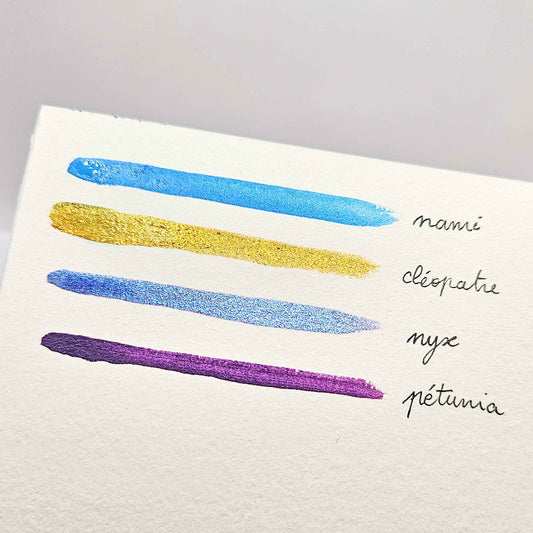 nami
cléopatre
nyx
pétunia